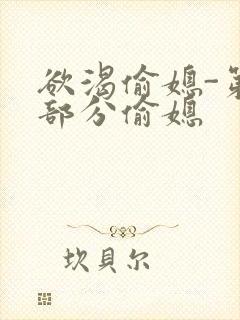 欲渴偷媳-第
部分偷媳
坎貝尔